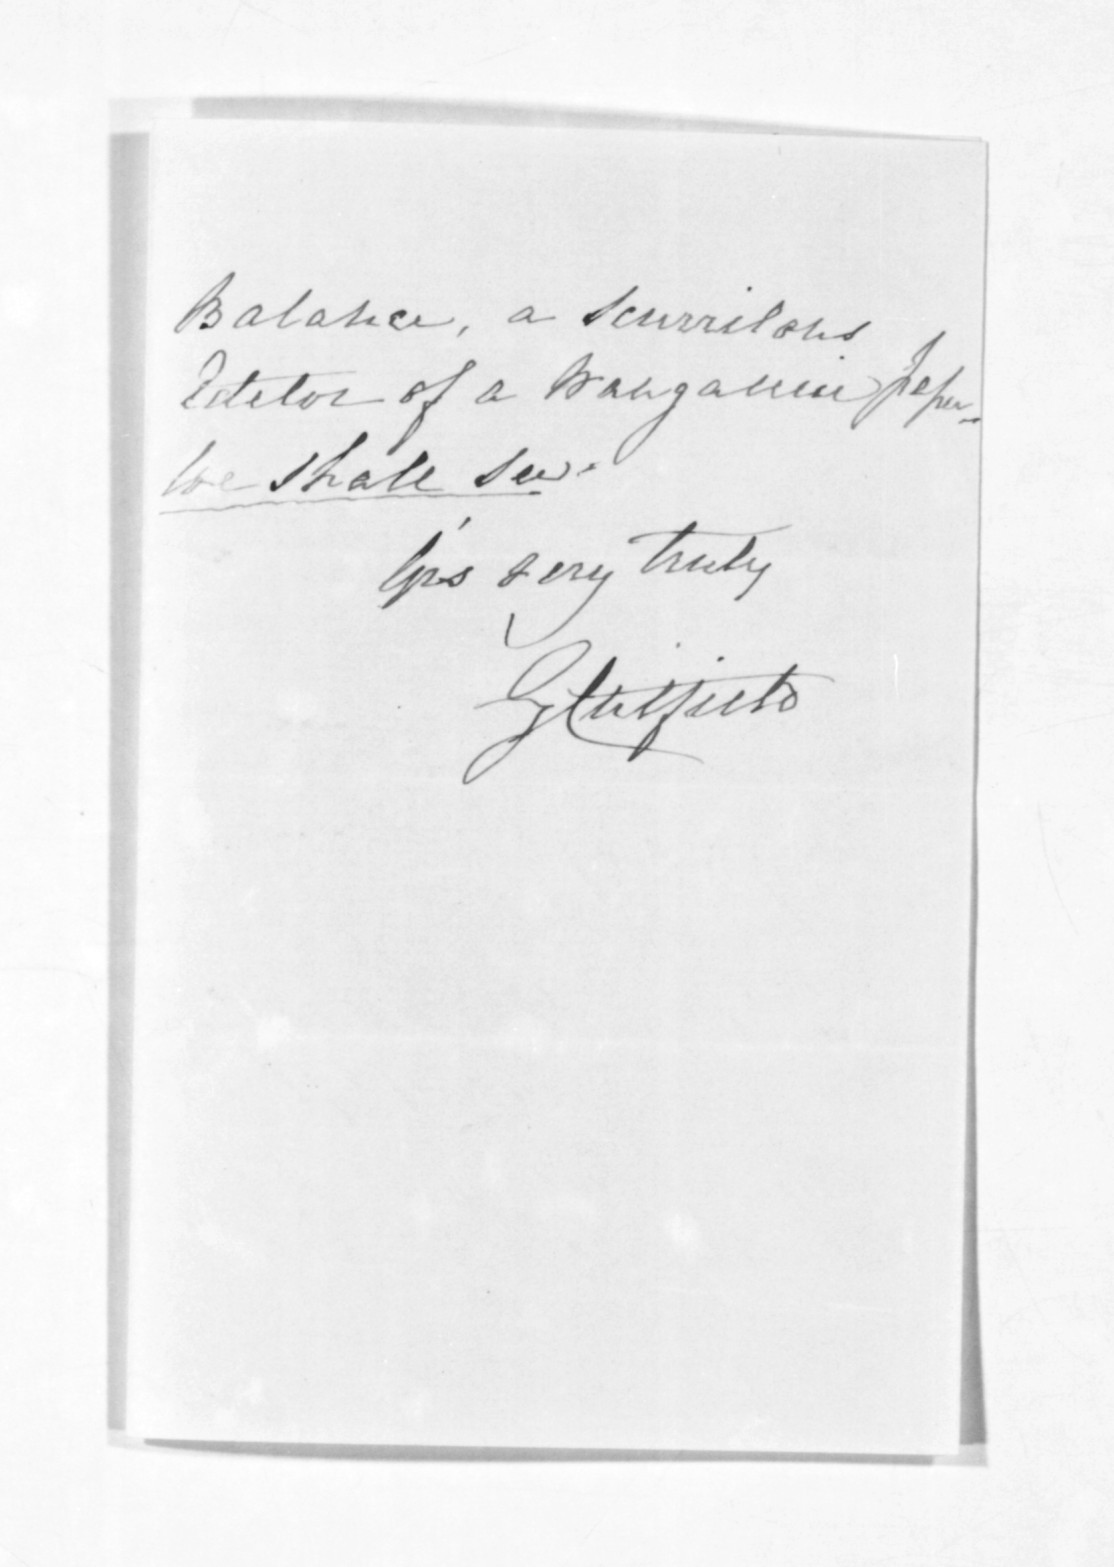 Balance, a scurrilous
Editor of a Wanganui Paper.
We shall see.
Yrs very truly